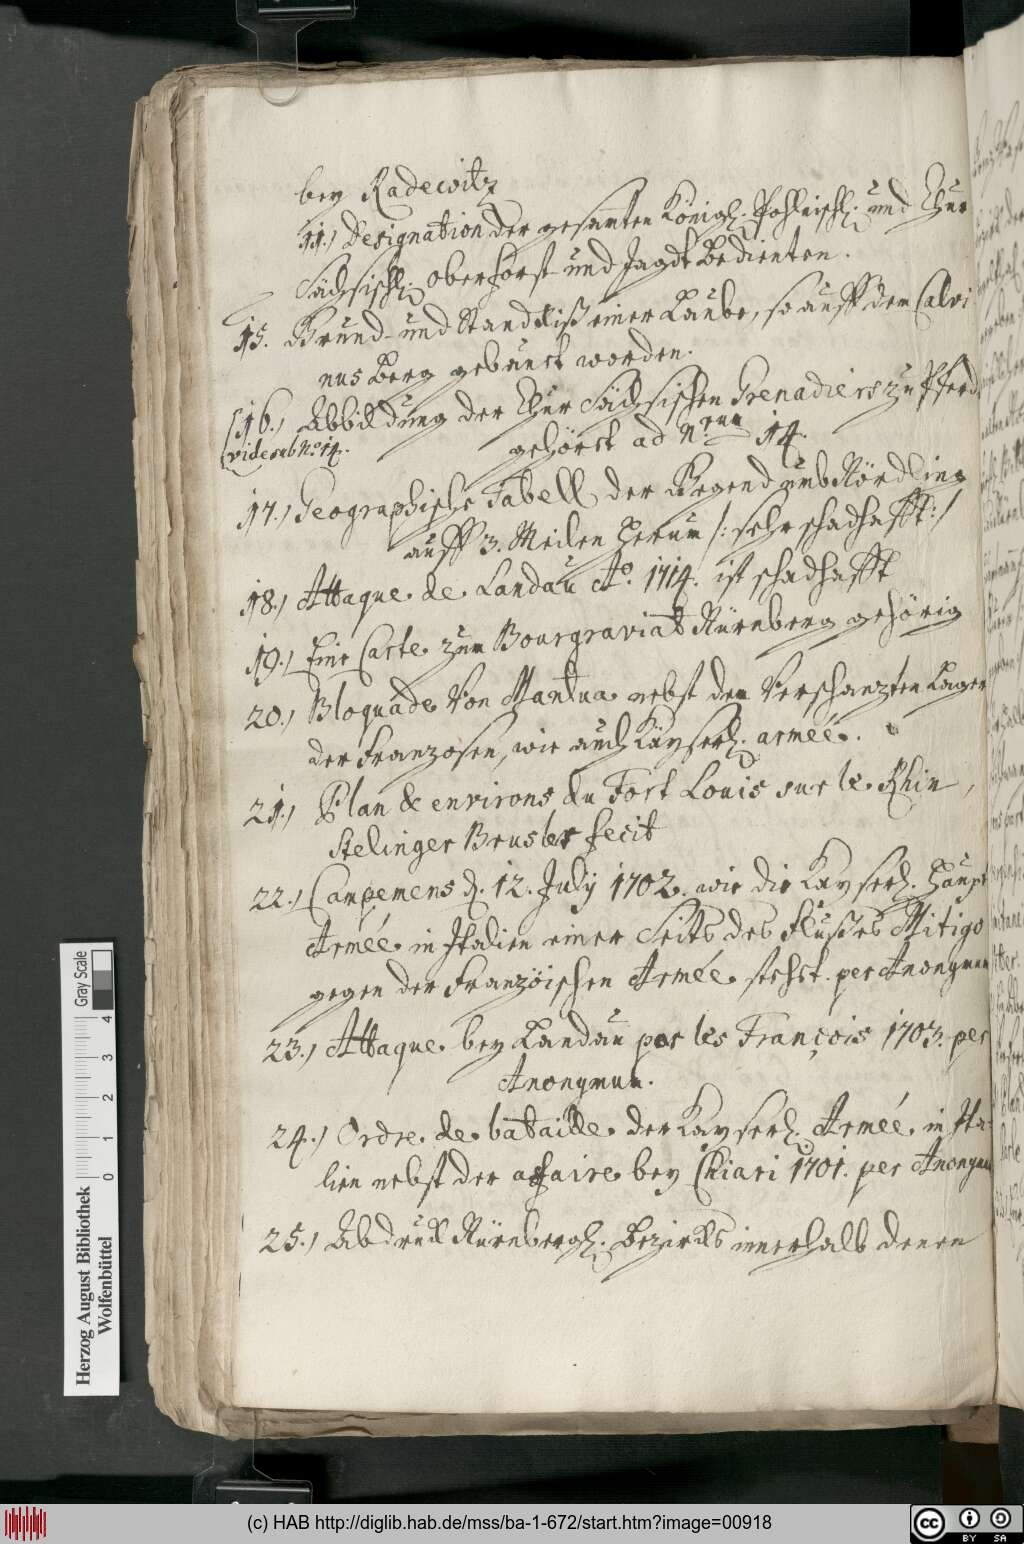 bey Radewitz
11.) Designation der gesamten Königl. Pohlnischl. und Chur
Sächsischl. oberforst- und Jagdt Bedienten.
15. Grund- und Standriß einer Laube, so auff dem Calvi
nus Berg gebauet worden.
16.) Abbildung der Chur Sächsischen Grenadiers zu Pferd
vide sub No 14.
gehöret ad N.rum 14.
17.) Geographische Tabell der Gegend umb Nördling
auff 3. Meilen herum /: sehr schadhafft :/
18.) Attaque de Landau Ao. 1714. ist schadhafft
19.) Eine Carte zum Bourgraviat Nürnberg gehörig
20.) Bloquade Von Mantua nebst den Verschanzten Lager
der Franzosen, wie auch Kaÿserl. armée.
21.) Plan & environs du Fort Louis sur le Rhin,
Stelinger Brusler fecit
22.) Campemens d. 12. Julÿ 1702. wie die Kayserl. Haupt
Armée in Italien einer Seits des Flußes Mitigo
gegen der Französischen Armée stehet. per Anonymum
23.) Attaque bey Landau par les François 1703. per
Anonymum.
24.) Ordre de bataille der Kayserl. Armée in Ita-
lien nebst der affaire bey Chiari 1701. per Anonymum
25.) Abdruck Nürnbergl. Bezircks innerhalb denen
Herzog August Bibliothek
Wolfenbüttel
0 1 2 3 4
Gray Scale
(c) HAB http://diglib.hab.de/mss/ba-1-672/start.htm?image=00918
cc BY SA